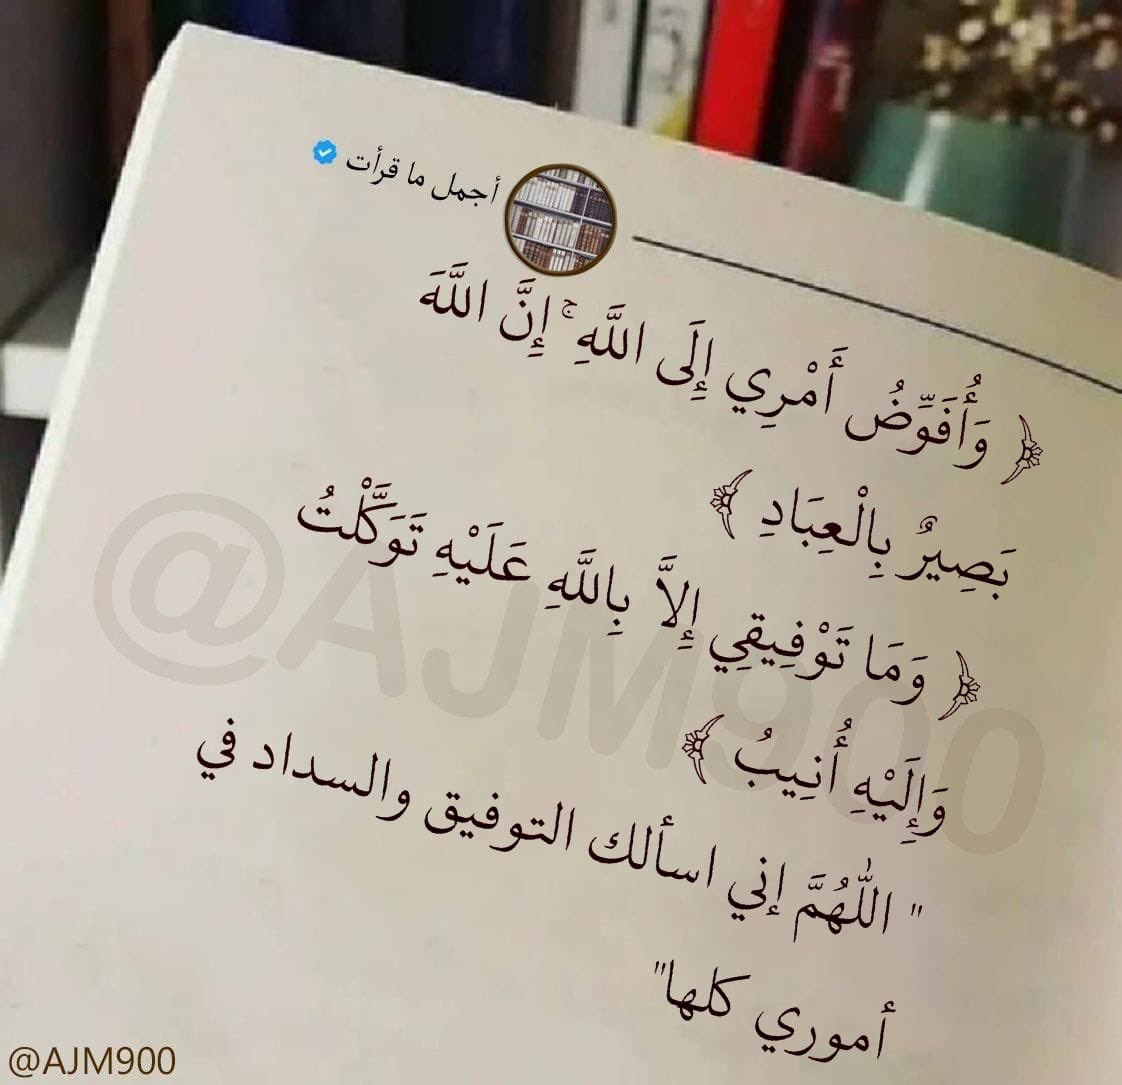 أجمل ما قرأت
﴿ وَأُفَوِّضُ أَمْرِي إِلَى اللَّهِ ۚ إِنَّ اللَّهَ
بَصِيرٌ بِالْعِبَادِ ﴾
﴿ وَمَا تَوْفِيقِي إِلاَّ بِاللَّهِ عَلَيْهِ تَوَكَّلْتُ
وَإِلَيْهِ أُنِيبُ ﴾
" اللَّهُمَّ إني اسألك التوفيق والسداد في
أموري كلها"
@AJM900
@AJM900